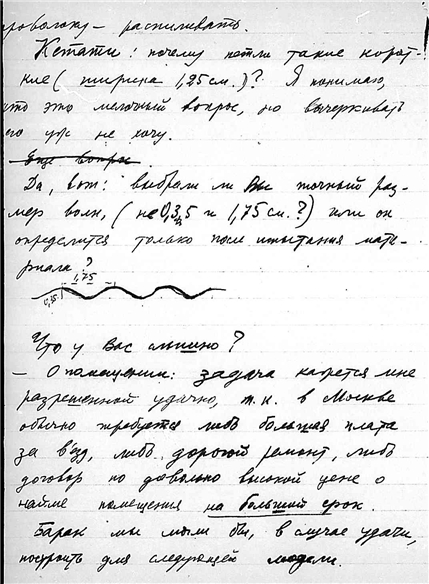 проволоку — распиливать.
Кстати: почему петли такие корот-
кие (ширина 1,25 см.)? Я понимаю,
что это мелочный вопрос, но вычеркивать
его уж не хочу.
Еще вопрос.
Да, вот: выбрали ли Вы точный раз-
мер волн, (не 0,35 и 1,75 см.?) или он
определится только после испытания мате-
риала?
1,75
0,35
Что у Вас слышно?
— О помещении: задача кажется мне
разрешенной удачно, т.к. в Москве
обычно требуется либо большая плата
за в'езд, либо дорогой ремонт, либо
договор по довольно высокой цене о
найме помещения на больший срок.
Барак мы могли бы, в случае удачи,
построить для следующей модели.